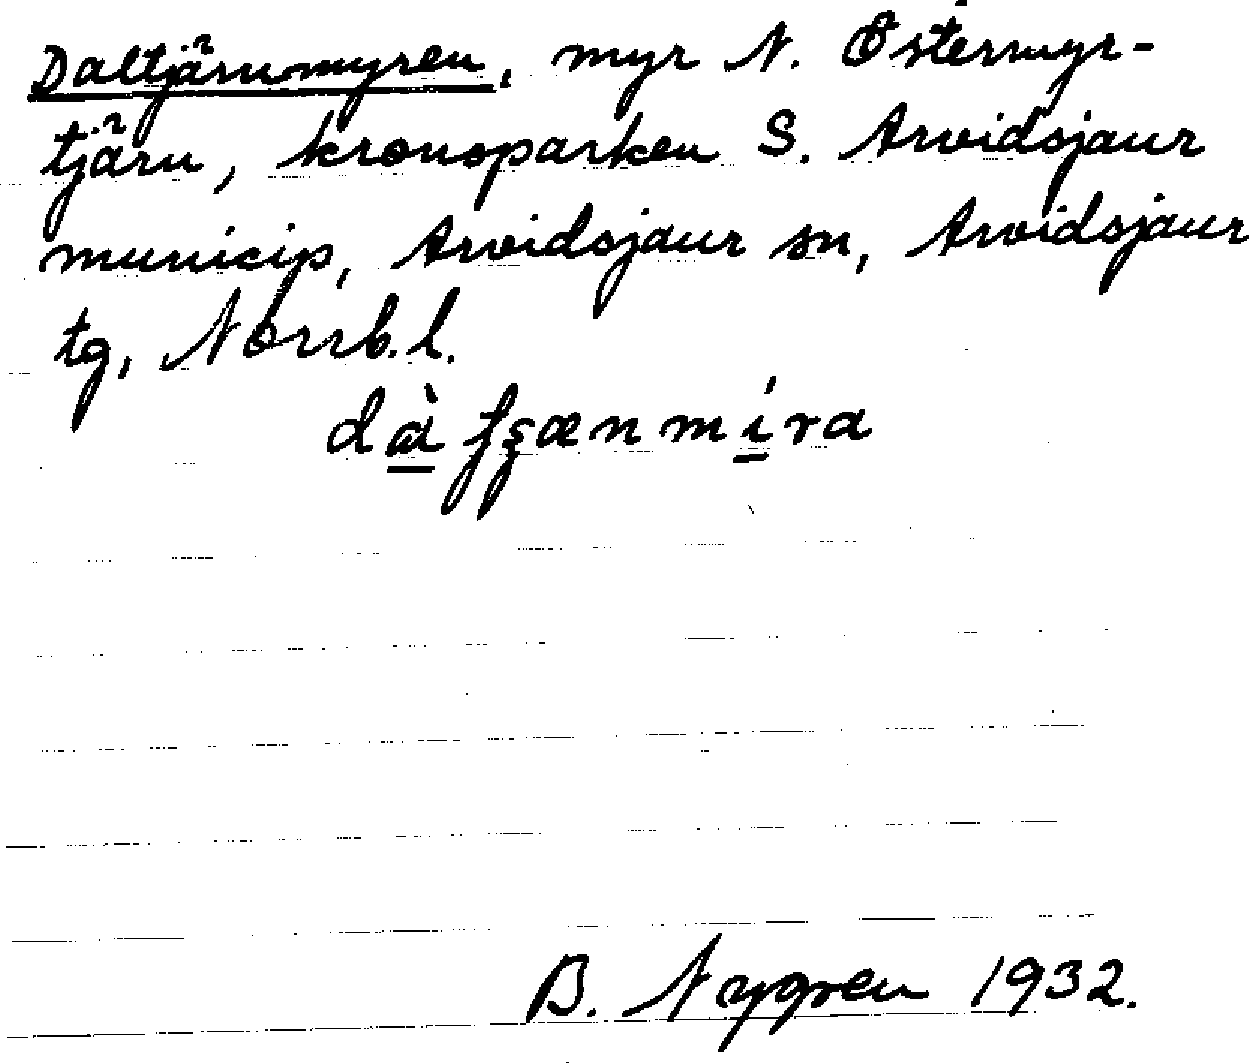 Daltjärnmyren, myr N. Östermyr-
tjärn, kronoparken S. Arvidsjaur
municip, Arvidsjaur sn, Arvidsjaur
tg, Norrb.l.
B. Nygren 1932.